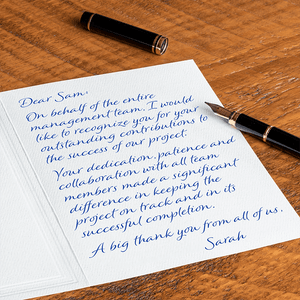 Dear Sam,
On behalf of the entire
management team, I would
like to recognize you for your
outstanding contributions to
the success of our project.
Your dedication, patience and
collaboration with all team
members made a significant
difference in keeping the
project on track and in its
successful completion.
A big thank you from all of us.
Sarah